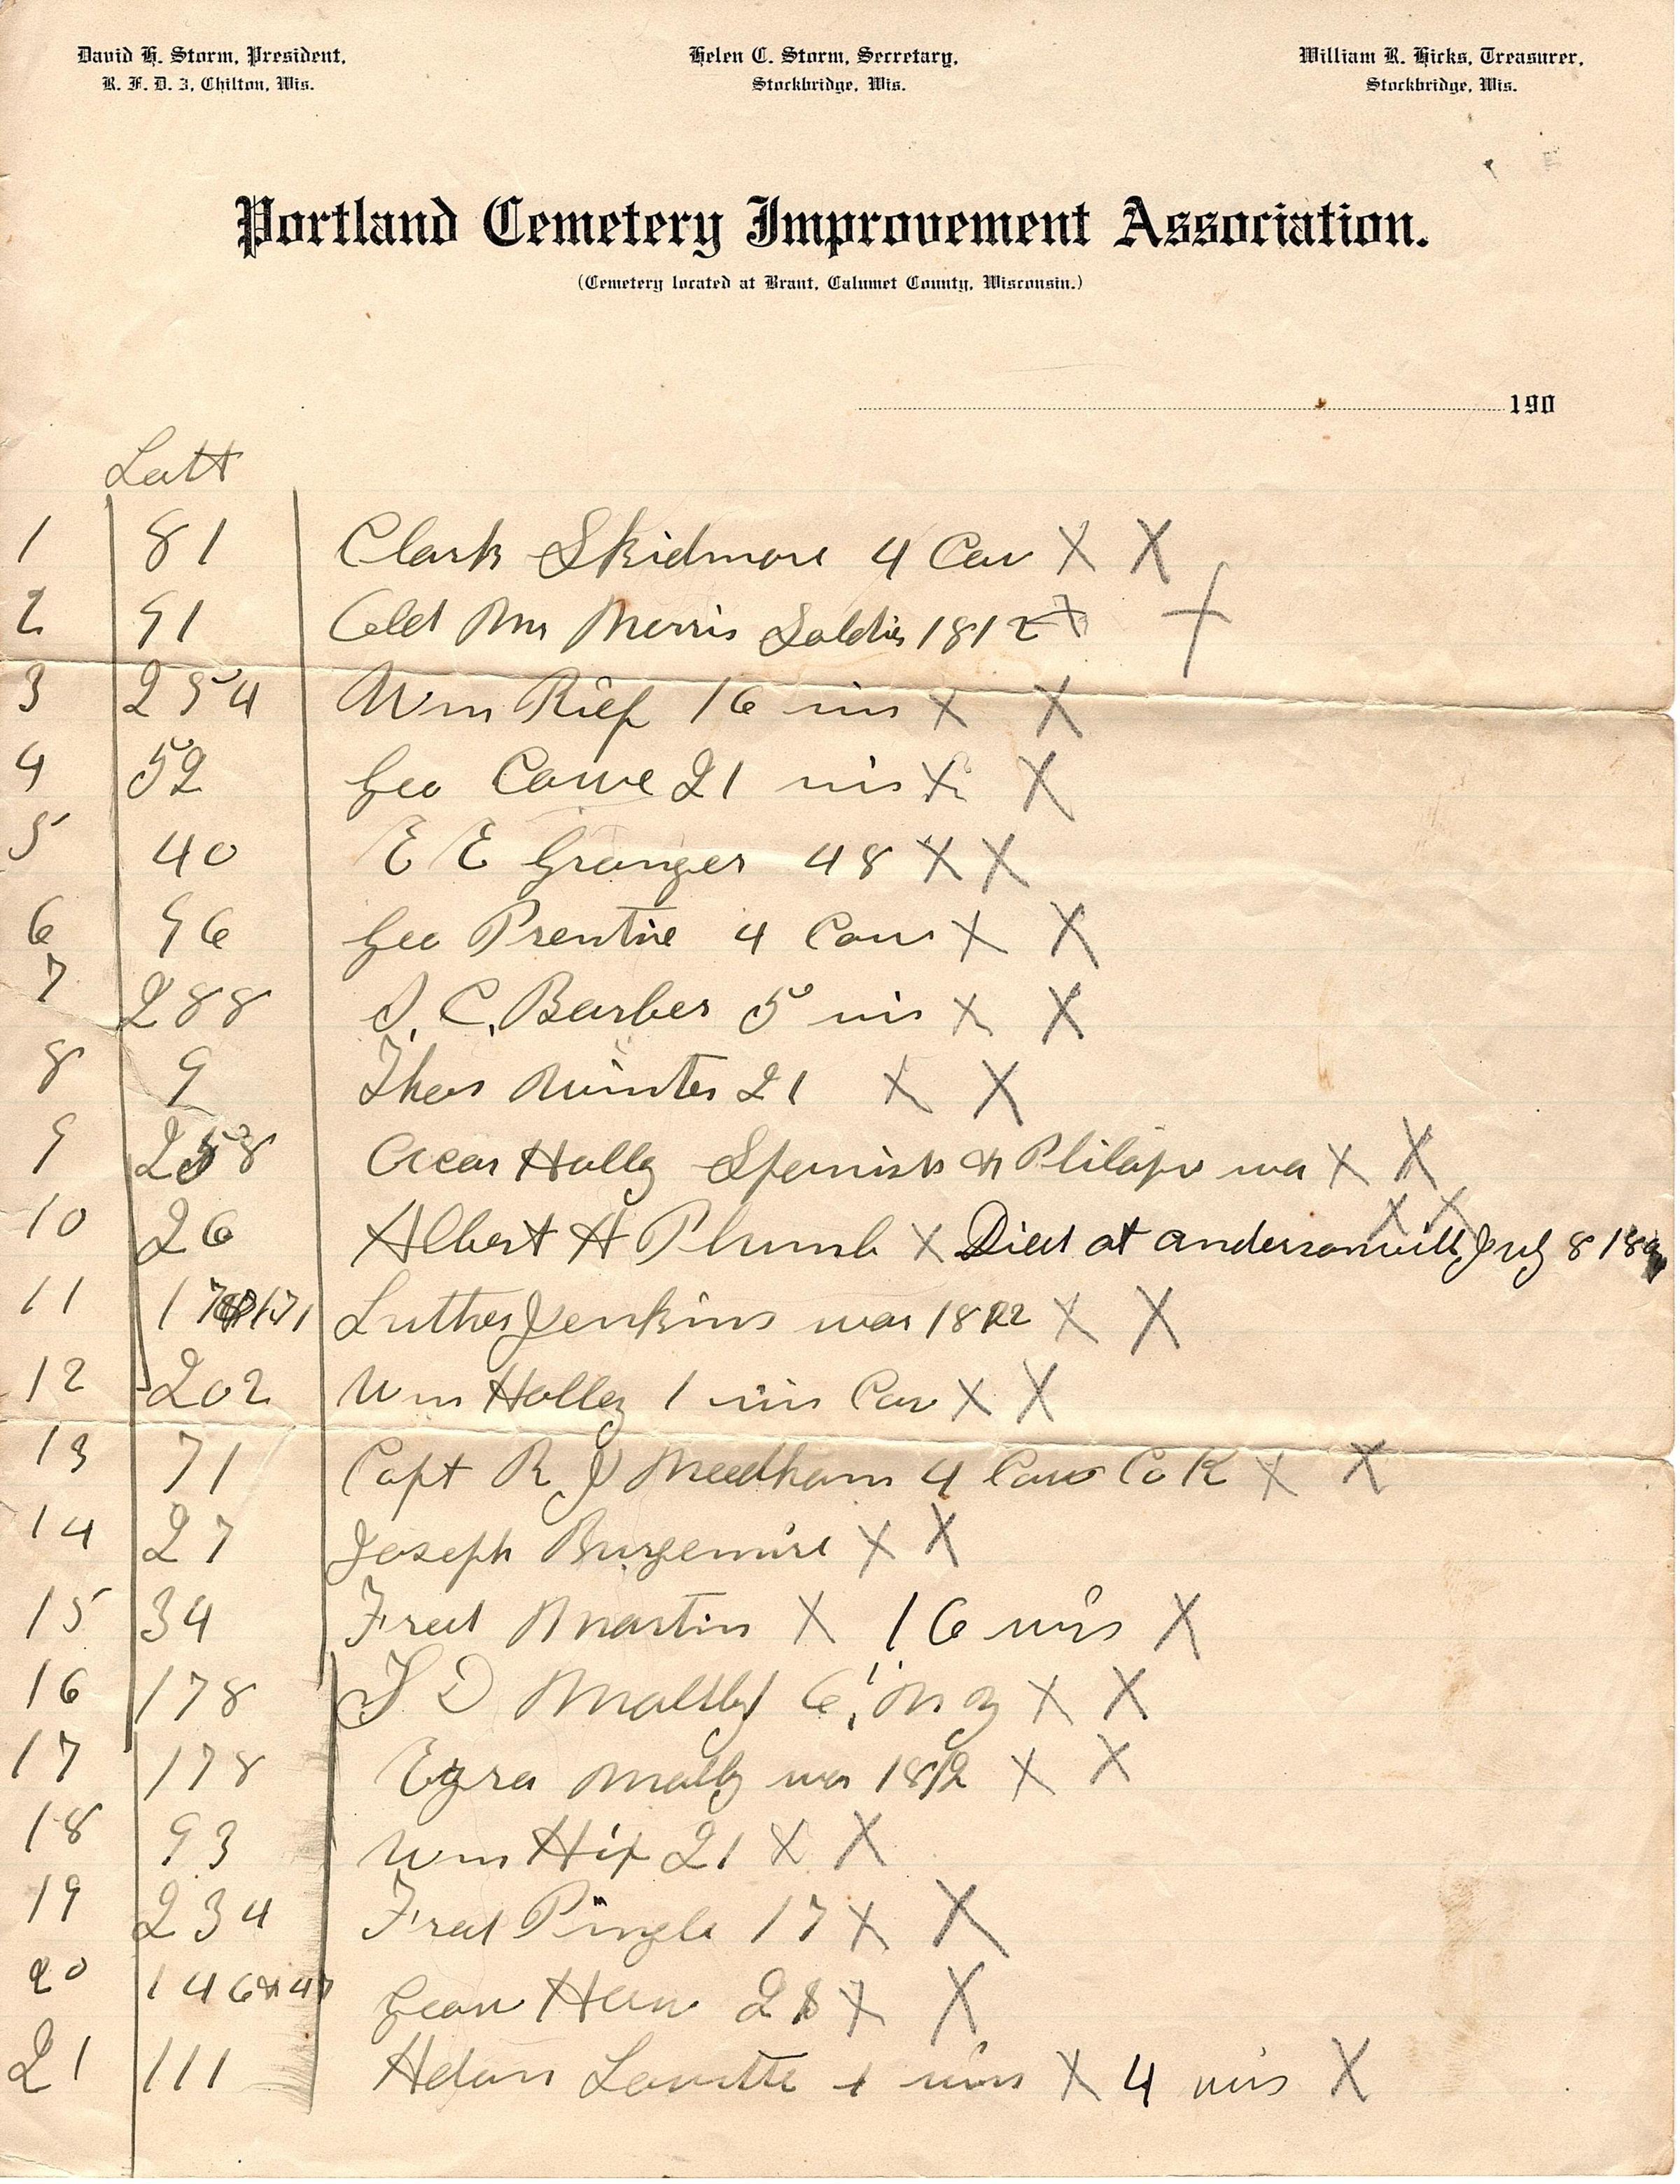 David H. Storm, President,
R. F. D. 3, Chilton, Wis.
Helen C. Storm, Secretary,
Stockbridge, Wis.
William R. Hicks, Treasurer,
Stockbridge, Wis.
Portland Cemetery Improvement Association.
(Cemetery located at Brant, Calumet County, Wisconsin.)
190
Lott
1 81 Clark Skidmore 4 Cav X X
2 91 Old Mr Morris Soldier 1812 X X
3 254 Wm Rief 16 wis X X
4 52 Geo Cowe 21 wis X X
5 40 E E Granger 48 X X
6 96 Geo Prentice 4 Cav X X
7 288 C. Barber 5 wis X X
8 9 Thos Minter 21 X X
9 258 Holly Spanish & war X X
10 26 Albert H Plumb X Died at andersonvill July 8 X X
11 171 Luther Jenkins war 1812 X X
12 202 Wm Holley 1 wis Cav X X
13 71 Capt R J Needham 4 Cav Co K X X
14 27 Joseph X X
15 34 Fred Martin X 16 wis X
16 178 D Maltby X X
17 178 Ezra Maltby war 1812 X X
18 93 Wm 21 X X
19 234 Fred Pingle 17 X X
20 146 & 47 X X
21 111 wis X 4 wis X